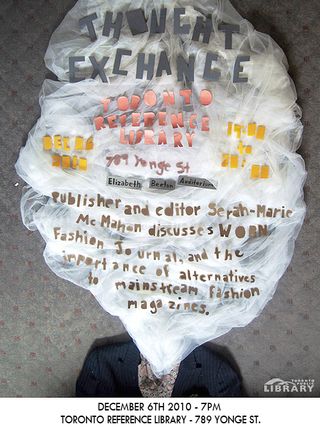 THOUGHT
EXCHANGE
TORONTO
REFERENCE
LIBRARY
DEC 06
2010
789 Yonge St
Elizabeth Beeton Auditorium
Publisher and editor Serah-Marie
McMahon discusses WORN
Fashion Journal, and the
importance of alternatives
to mainstream fashion
magazines.
TORONTO
LIBRARY
DECEMBER 6TH 2010 - 7PM
TORONTO REFERENCE LIBRARY - 789 YONGE ST.